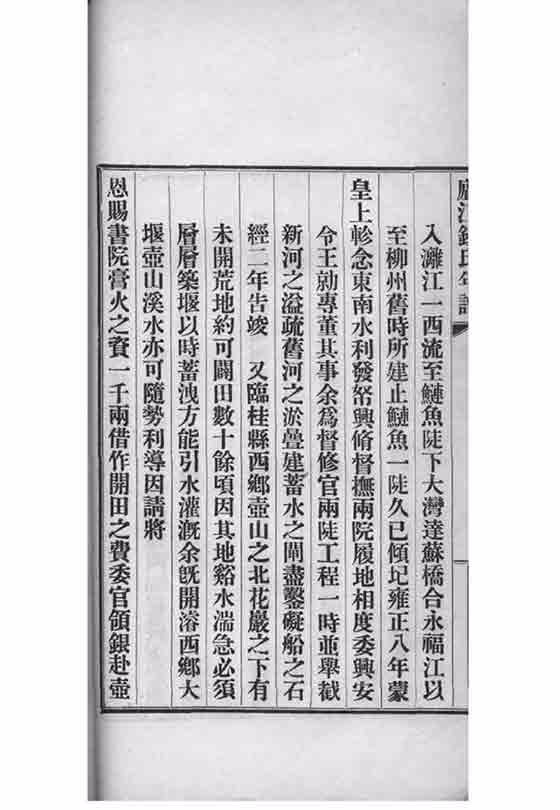 廬江錢氏年譜
入灕江一西流至鰱魚陡下大灣達蘇橋合永福江以
至柳州舊時所建止鰱魚一陡久已傾圮雍正八年蒙
皇上軫念東南水利發帑興脩督撫兩院履地相度委興安
令王勍專董其事余爲督修官兩陡工程一時並舉截
新河之溢疏舊河之淤疊建蓄水之閘盡鑿礙船之石
經二年告竣 又臨桂縣西鄉壺山之北花巖之下有
未開荒地約可闢田數十餘頃因其地谿水湍急必須
層層築堰以時蓄洩方能引水灌漑余旣開濬西鄉大
堰壺山溪水亦可隨勢利導因請將
恩賜書院膏火之資一千兩借作開田之費委官領銀赴壺